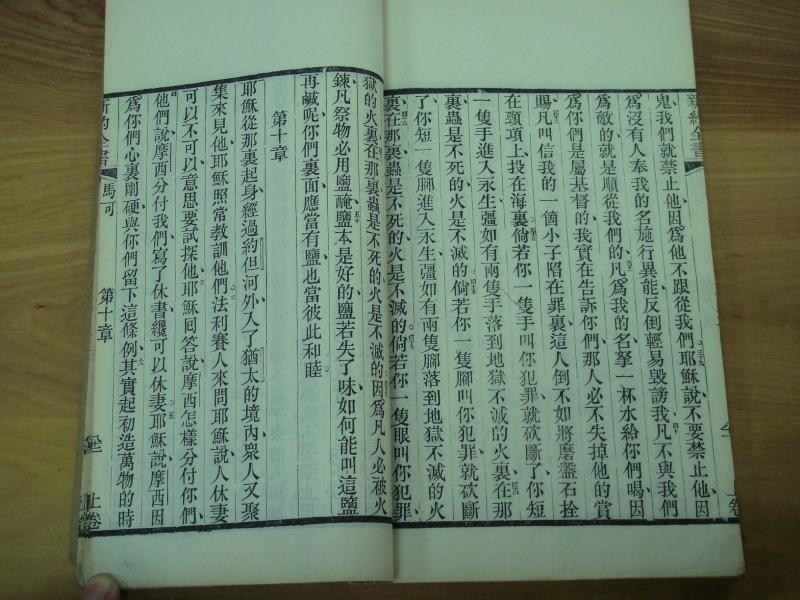 新約全書
鬼我們就禁止他因爲他不跟從我們耶穌說不要禁止他因
爲沒有人奉我的名施行異能反倒輕易毀謗我凡不與我們
爲敵的就是順從我們的凡爲我的名拏一杯水給你們喝因
爲你們是屬基督的我實在告訴你們那人必不失掉他的賞
賜凡叫信我的一個小子陷在罪裏這人倒不如將磨盤石拴
在頸項上投在海裏倘若你一隻手叫你犯罪就砍斷了你短
一隻手進入永生彊如有兩隻手落到地獄不滅的火裏在那
裏蟲是不死的火是不滅的倘若你一隻腳叫你犯罪就砍斷
了你短一隻腳進入永生彊如有兩隻腳落到地獄不滅的火
裏在那裏蟲是不死的火是不滅的倘若你一隻眼叫你犯罪
獄的火裏在那裏蟲是不死的火是不滅的因爲凡人必被火
鍊凡祭物必用鹽醃鹽本是好的鹽若失了味如何能叫這鹽
再鹹呢你們裏面應當有鹽也當彼此和睦
第十章
耶穌從那裏起身經過約但河外入了猶太的境內衆人又聚
集來見他耶穌照常教訓他們法利賽人來問耶穌說人休妻
可以不可以意思要試探他耶穌回答說摩西怎樣分付你們
他們說摩西分付我們寫了休書纔可以休妻耶穌說摩西因
爲你們心裏剛硬與你們留下這條例其實起初造萬物的時
新約全書 馬可 第十章 上卷